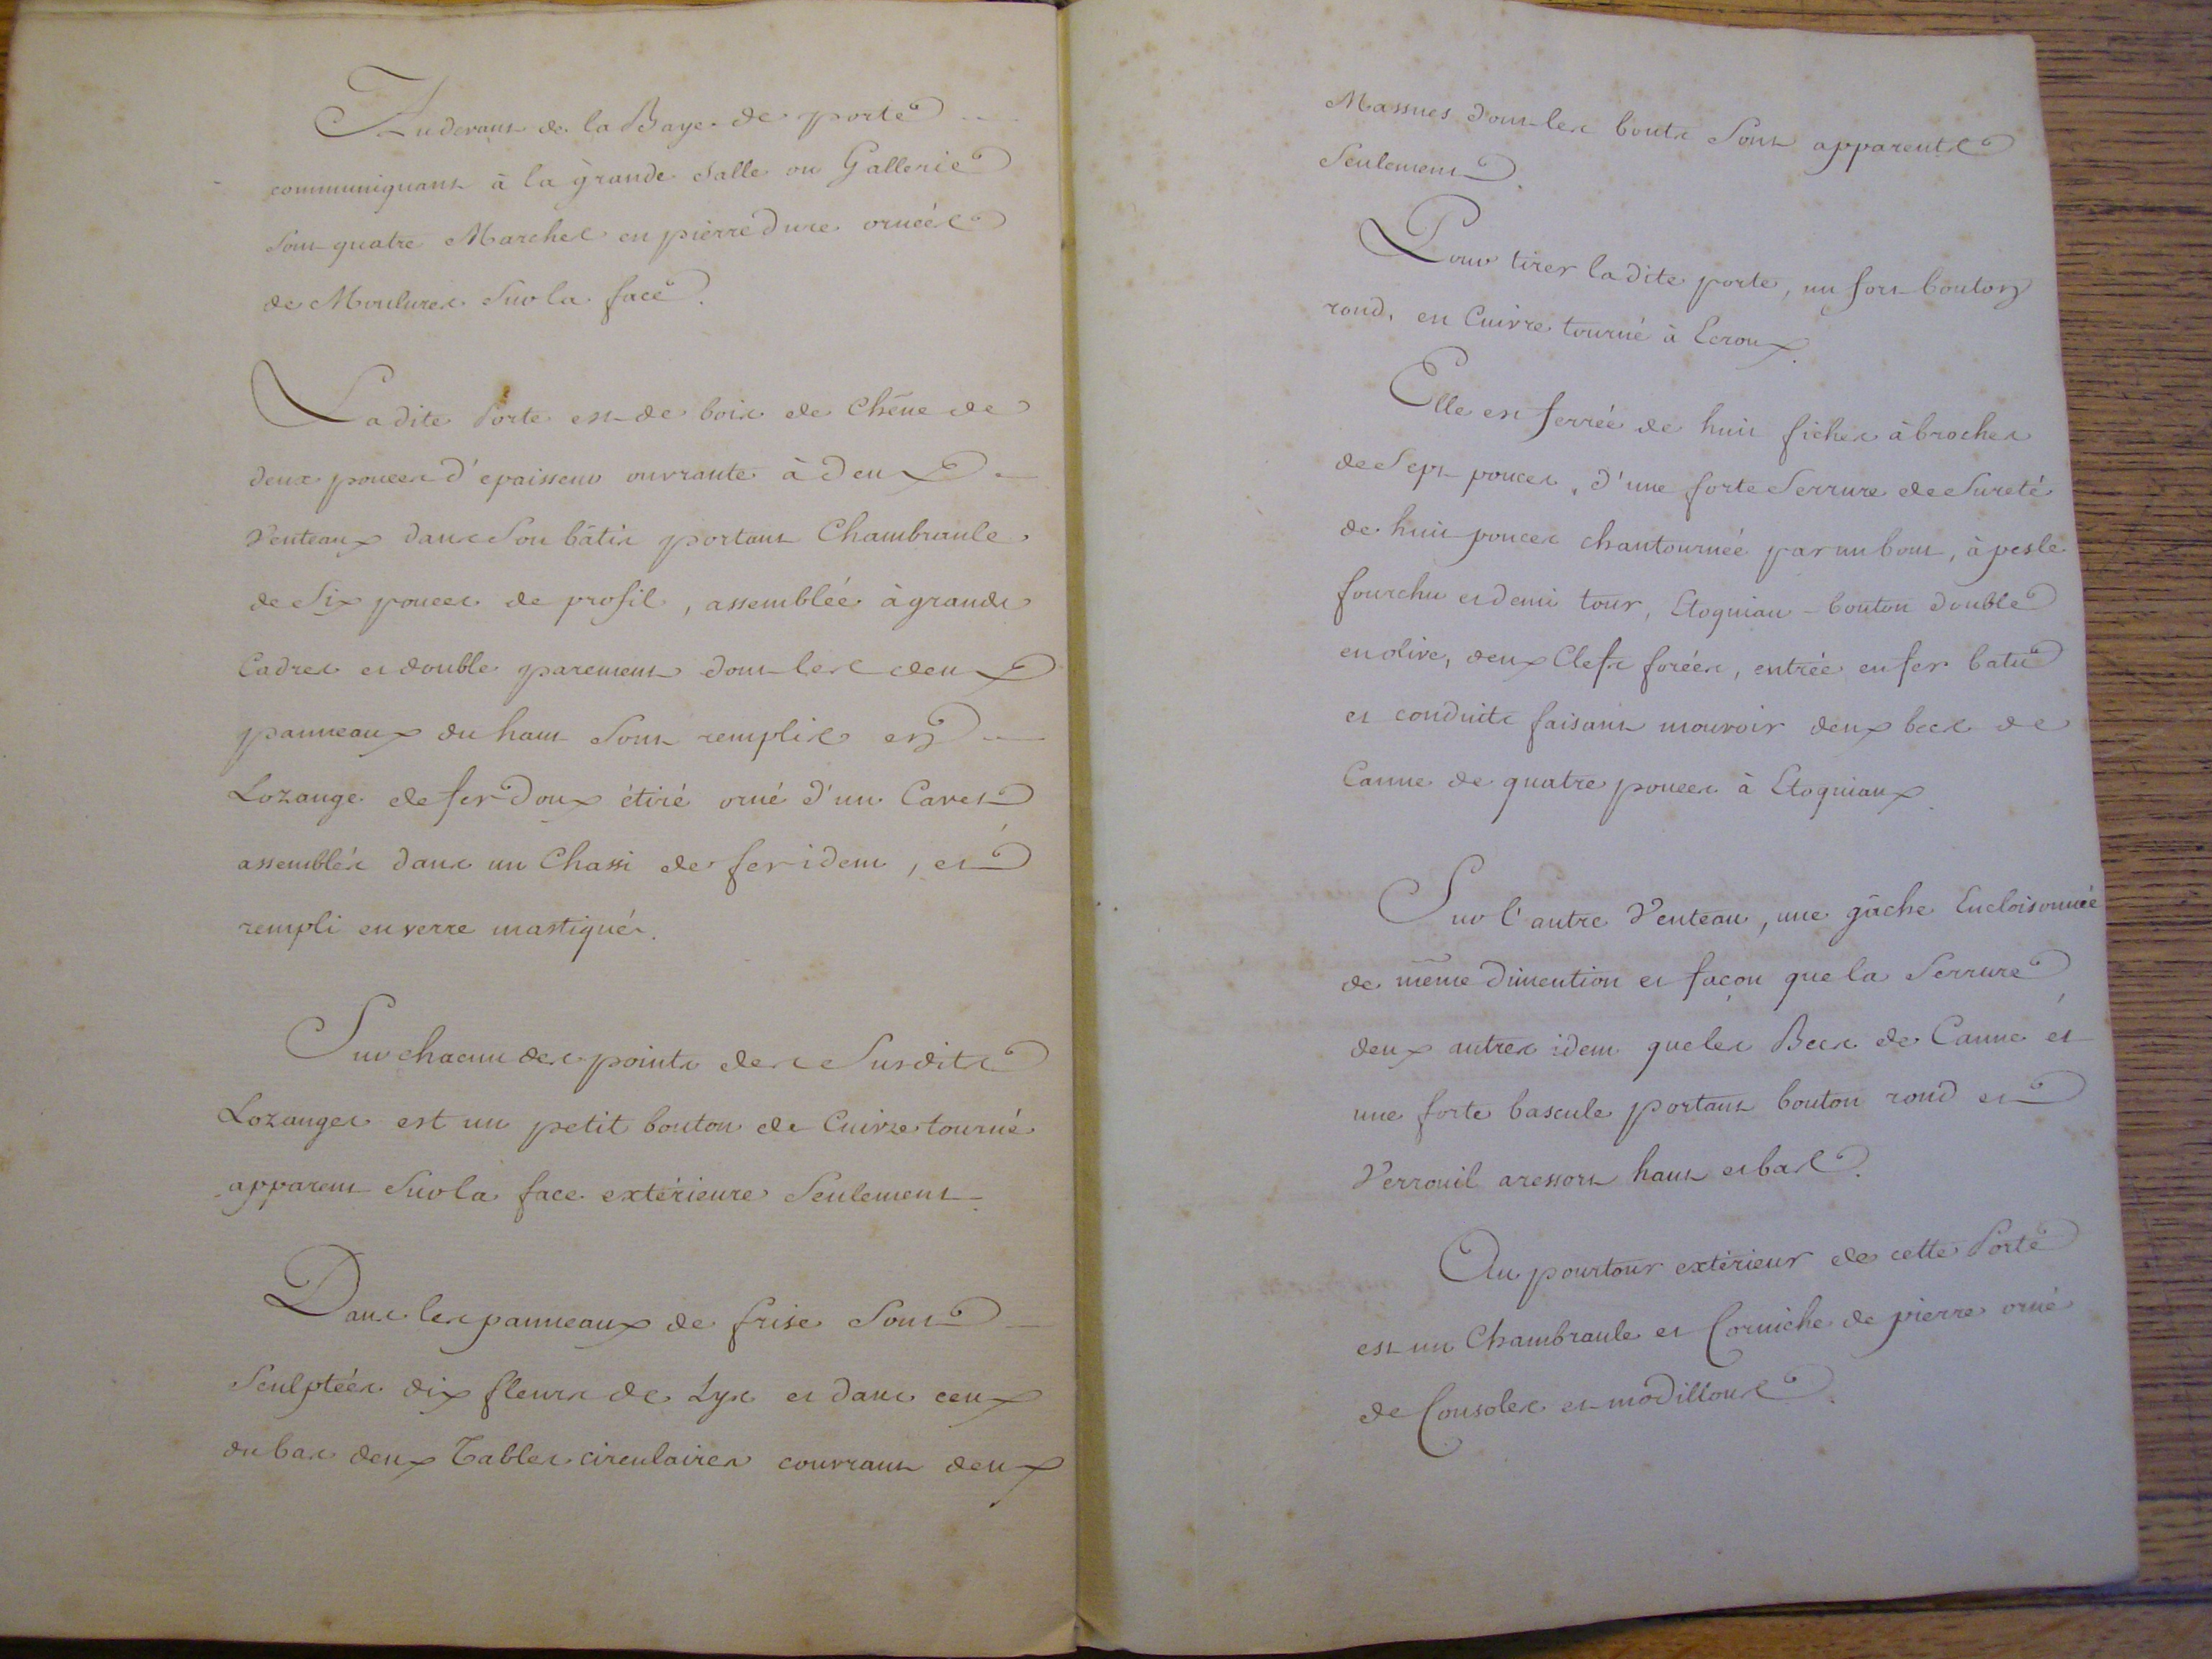 Audevant de la Baye de porte
communiquant à la grande salle ou Gallerie
sont quatre Marches en pierre dure ornées
de Moulures Sur la face.
Ladite Porte est de bois de Chêne de
deux pouces d'epaisseur ouvrante à deux
Venteaux dans Son bâtis portant Chambranle
de Six pouces de profil, assemblée à grands
Cadres et double parement dont les deux
panneaux du haut Sont remplis en
Lozange de fer doux étiré orné d'un Cavet
assemblés dans un Chassi de fer idem, et
rempli en verre mastiqués.
Sur chacun des points des Susdits
Lozanges est un petit bouton de Cuivre tourné
apparent Sur la face extérieure Seulement.
Dans les panneaux de frise Sont
Sculptées dix fleurs de Lys et dans ceux
du bas deux Tables circulaires couvrant deux
Massues dont les bouts Sont apparents
Seulement.
Pour tirer ladite porte, un fort bouton
rond, en Cuivre tourné à Ecroux.
Elle est ferrée de huit fiches à broches
de Sept pouces, d'une forte Serrure de Sureté
de huit pouces chantournée par un bout, à pesle
fourchu et demi tour, Etoquiau - bouton double
en olive, deux Clefs forées, entrée en fer batu
et conduits faisant mouvoir deux becs de
Canne de quatre pouces à Etoquiaux.
Sur l'autre Venteau, une gâche Encloisonnée
de même dimention et façon que la Serrure
deux autres idem que les Becs de Canne et
une forte bascule portant bouton rond et
Verrouil a ressort haut et bas.
Au pourtour extérieur de cette Porte
est un Chambranle et Corniche de pierre orné
de Consoles et modillons.